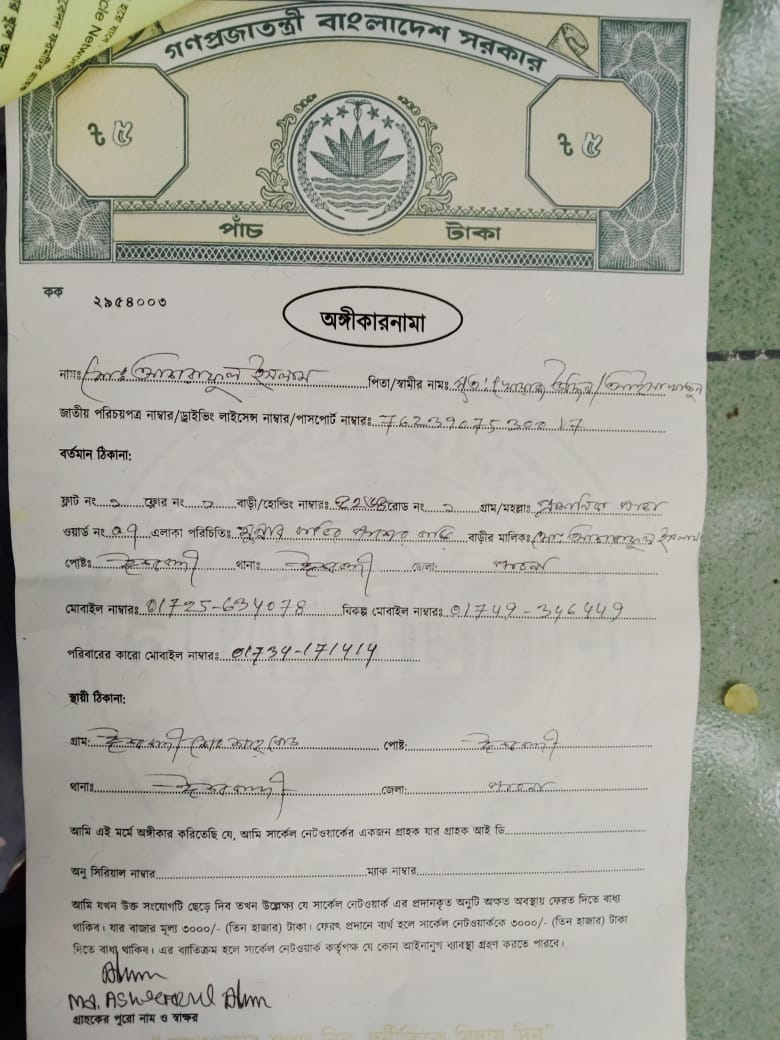 cle Network
গণপ্রজাতন্ত্রী বাংলাদেশ সরকার
৳ ৫ ৳ ৫
পাঁচ টাকা
কক ২৯৫৪০০৩
অঙ্গীকারনামা
নামঃ মোঃ আশরাফুল ইসলাম পিতা/স্বামীর নামঃ মৃত:
জাতীয় পরিচয়পত্র নাম্বার/ড্রাইভিং লাইসেন্স নাম্বার/পাসপোর্ট নাম্বারঃ 7623907530017
বর্তমান ঠিকানা:
ফ্লাট নং ফ্লোর নং বাড়ী/হোল্ডিং নাম্বারঃ রোড নং গ্রাম/মহল্লাঃ
ওয়ার্ড নং ০৭ এলাকা পরিচিতিঃ বাড়ীর মালিকঃ মোঃ আশরাফুল ইসলাম
পোষ্টঃ ঈশ্বরদী থানাঃ ঈশ্বরদী জেলা: পাবনা
মোবাইল নাম্বারঃ 01725-634078 বিকল্প মোবাইল নাম্বারঃ 01749-346449
পরিবারের কারো মোবাইল নাম্বারঃ 01734-171414
স্থায়ী ঠিকানা:
গ্রাম: ঈশ্বরদী পোষ্ট: ঈশ্বরদী
থানাঃ ঈশ্বরদী জেলা: পাবনা
আমি এই মর্মে অঙ্গীকার করিতেছি যে, আমি সার্কেল নেটওয়ার্কের একজন গ্রাহক যার গ্রাহক আই ডি
অনু সিরিয়াল নাম্বার ম্যাক নাম্বার
আমি যখন উক্ত সংযোগটি ছেড়ে দিব তখন উল্লেক্ষ্য যে সার্কেল নেটওয়ার্ক এর প্রদানকৃত অনুটি অক্ষত অবস্থায় ফেরত দিতে বাধ্য
থাকিব। যার বাজার মূল্য ৩০০০/- (তিন হাজার) টাকা। ফেরৎ প্রদানে ব্যর্থ হলে সার্কেল নেটওয়ার্ককে ৩০০০/- (তিন হাজার) টাকা
দিতে বাধ্য থাকিব। এর ব্যতিক্রম হলে সার্কেল নেটওয়ার্ক কর্তৃপক্ষ যে কোন আইনানুগ ব্যবস্থা গ্রহণ করতে পারবে।
Md.
গ্রাহকের পুরো নাম ও স্বাক্ষর